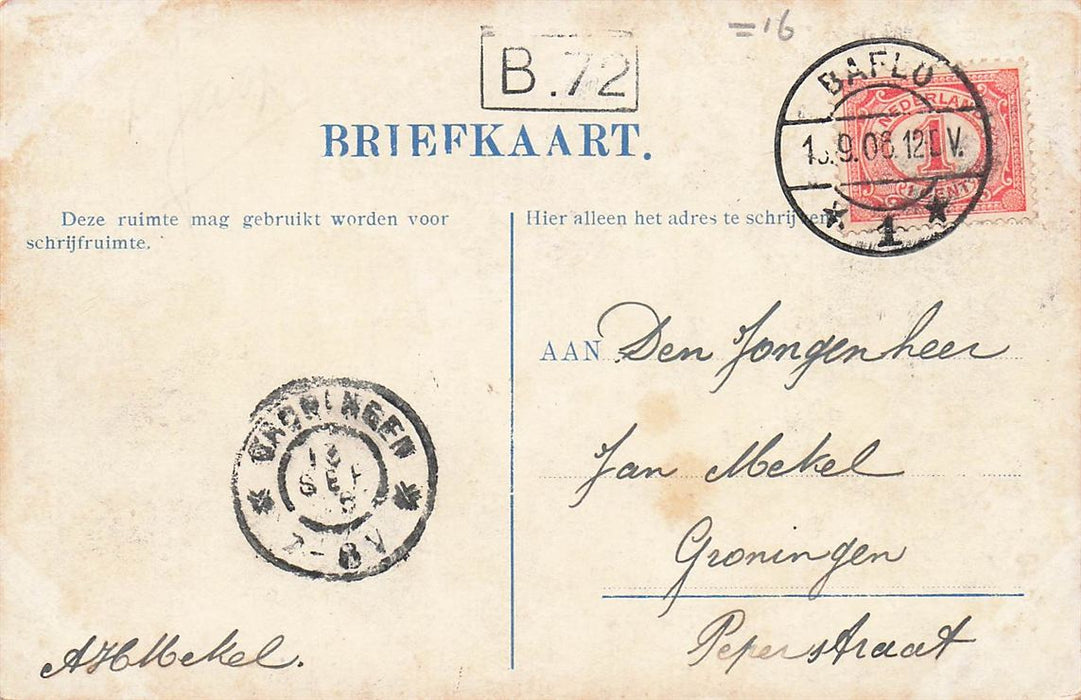 =16
B.72
BRIEFKAART.
BAFLO
9.06.12
1
NEDERLAND
1
CENT
Deze ruimte mag gebruikt worden voor
schrijfruimte.
Hier alleen het adres te schrijven
AAN Den Jongenheer
Jan Mekel
Groningen
Peperstraat
GRONINGEN
SEP
8 V
AHMekel.